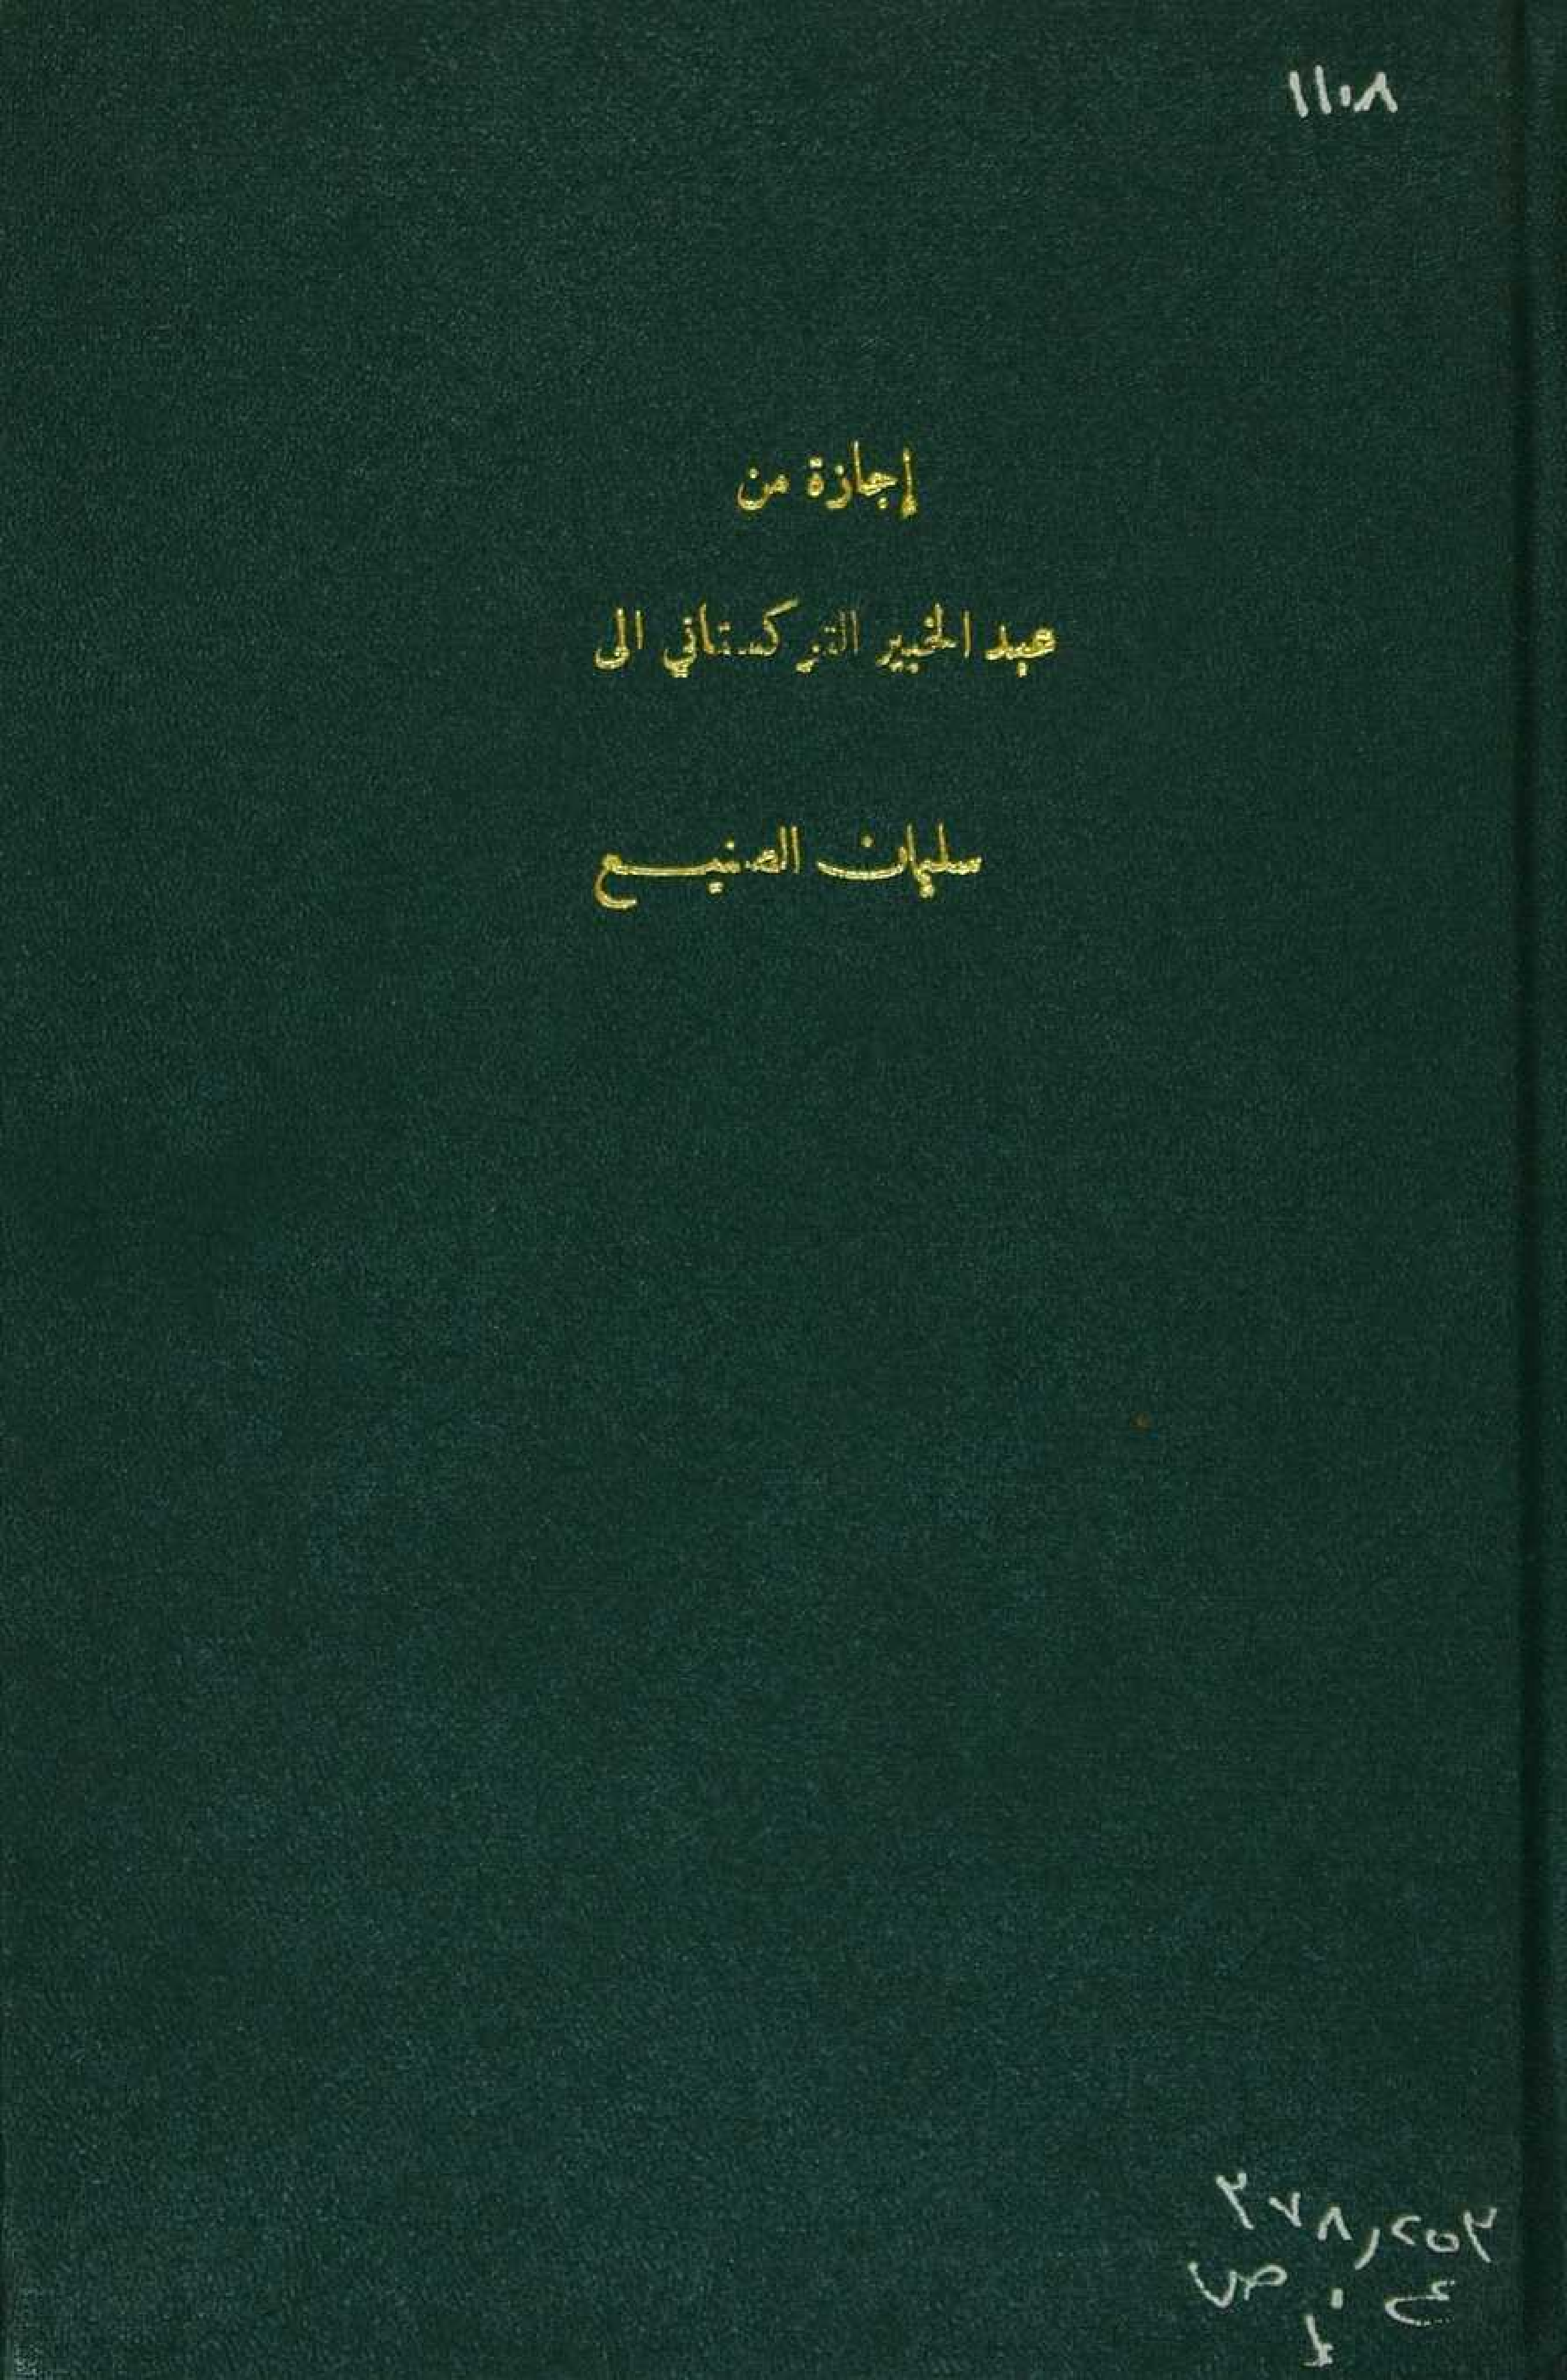 ١١٠٨
إجازة من
عبد الخبير التركستاني الى
سليمان الصنيع
٢٧٨٫٢٥٣
ص ٠ ع
إ